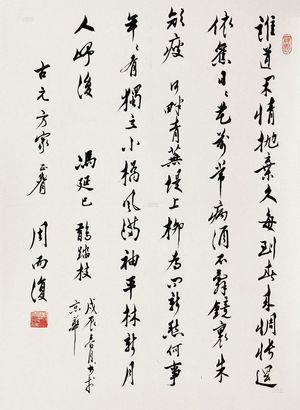 誰道閑情拋棄久每到春来惆悵還
依舊日〻花前常病酒不辭鏡裏朱
顏瘦河畔青蕪堤上柳為問新愁何事
年〻有獨立小橋風滿袖平林新月
人歸後 馮延巳 鵲踏枝 戊辰春月書於
京華
古元方家正
周而復